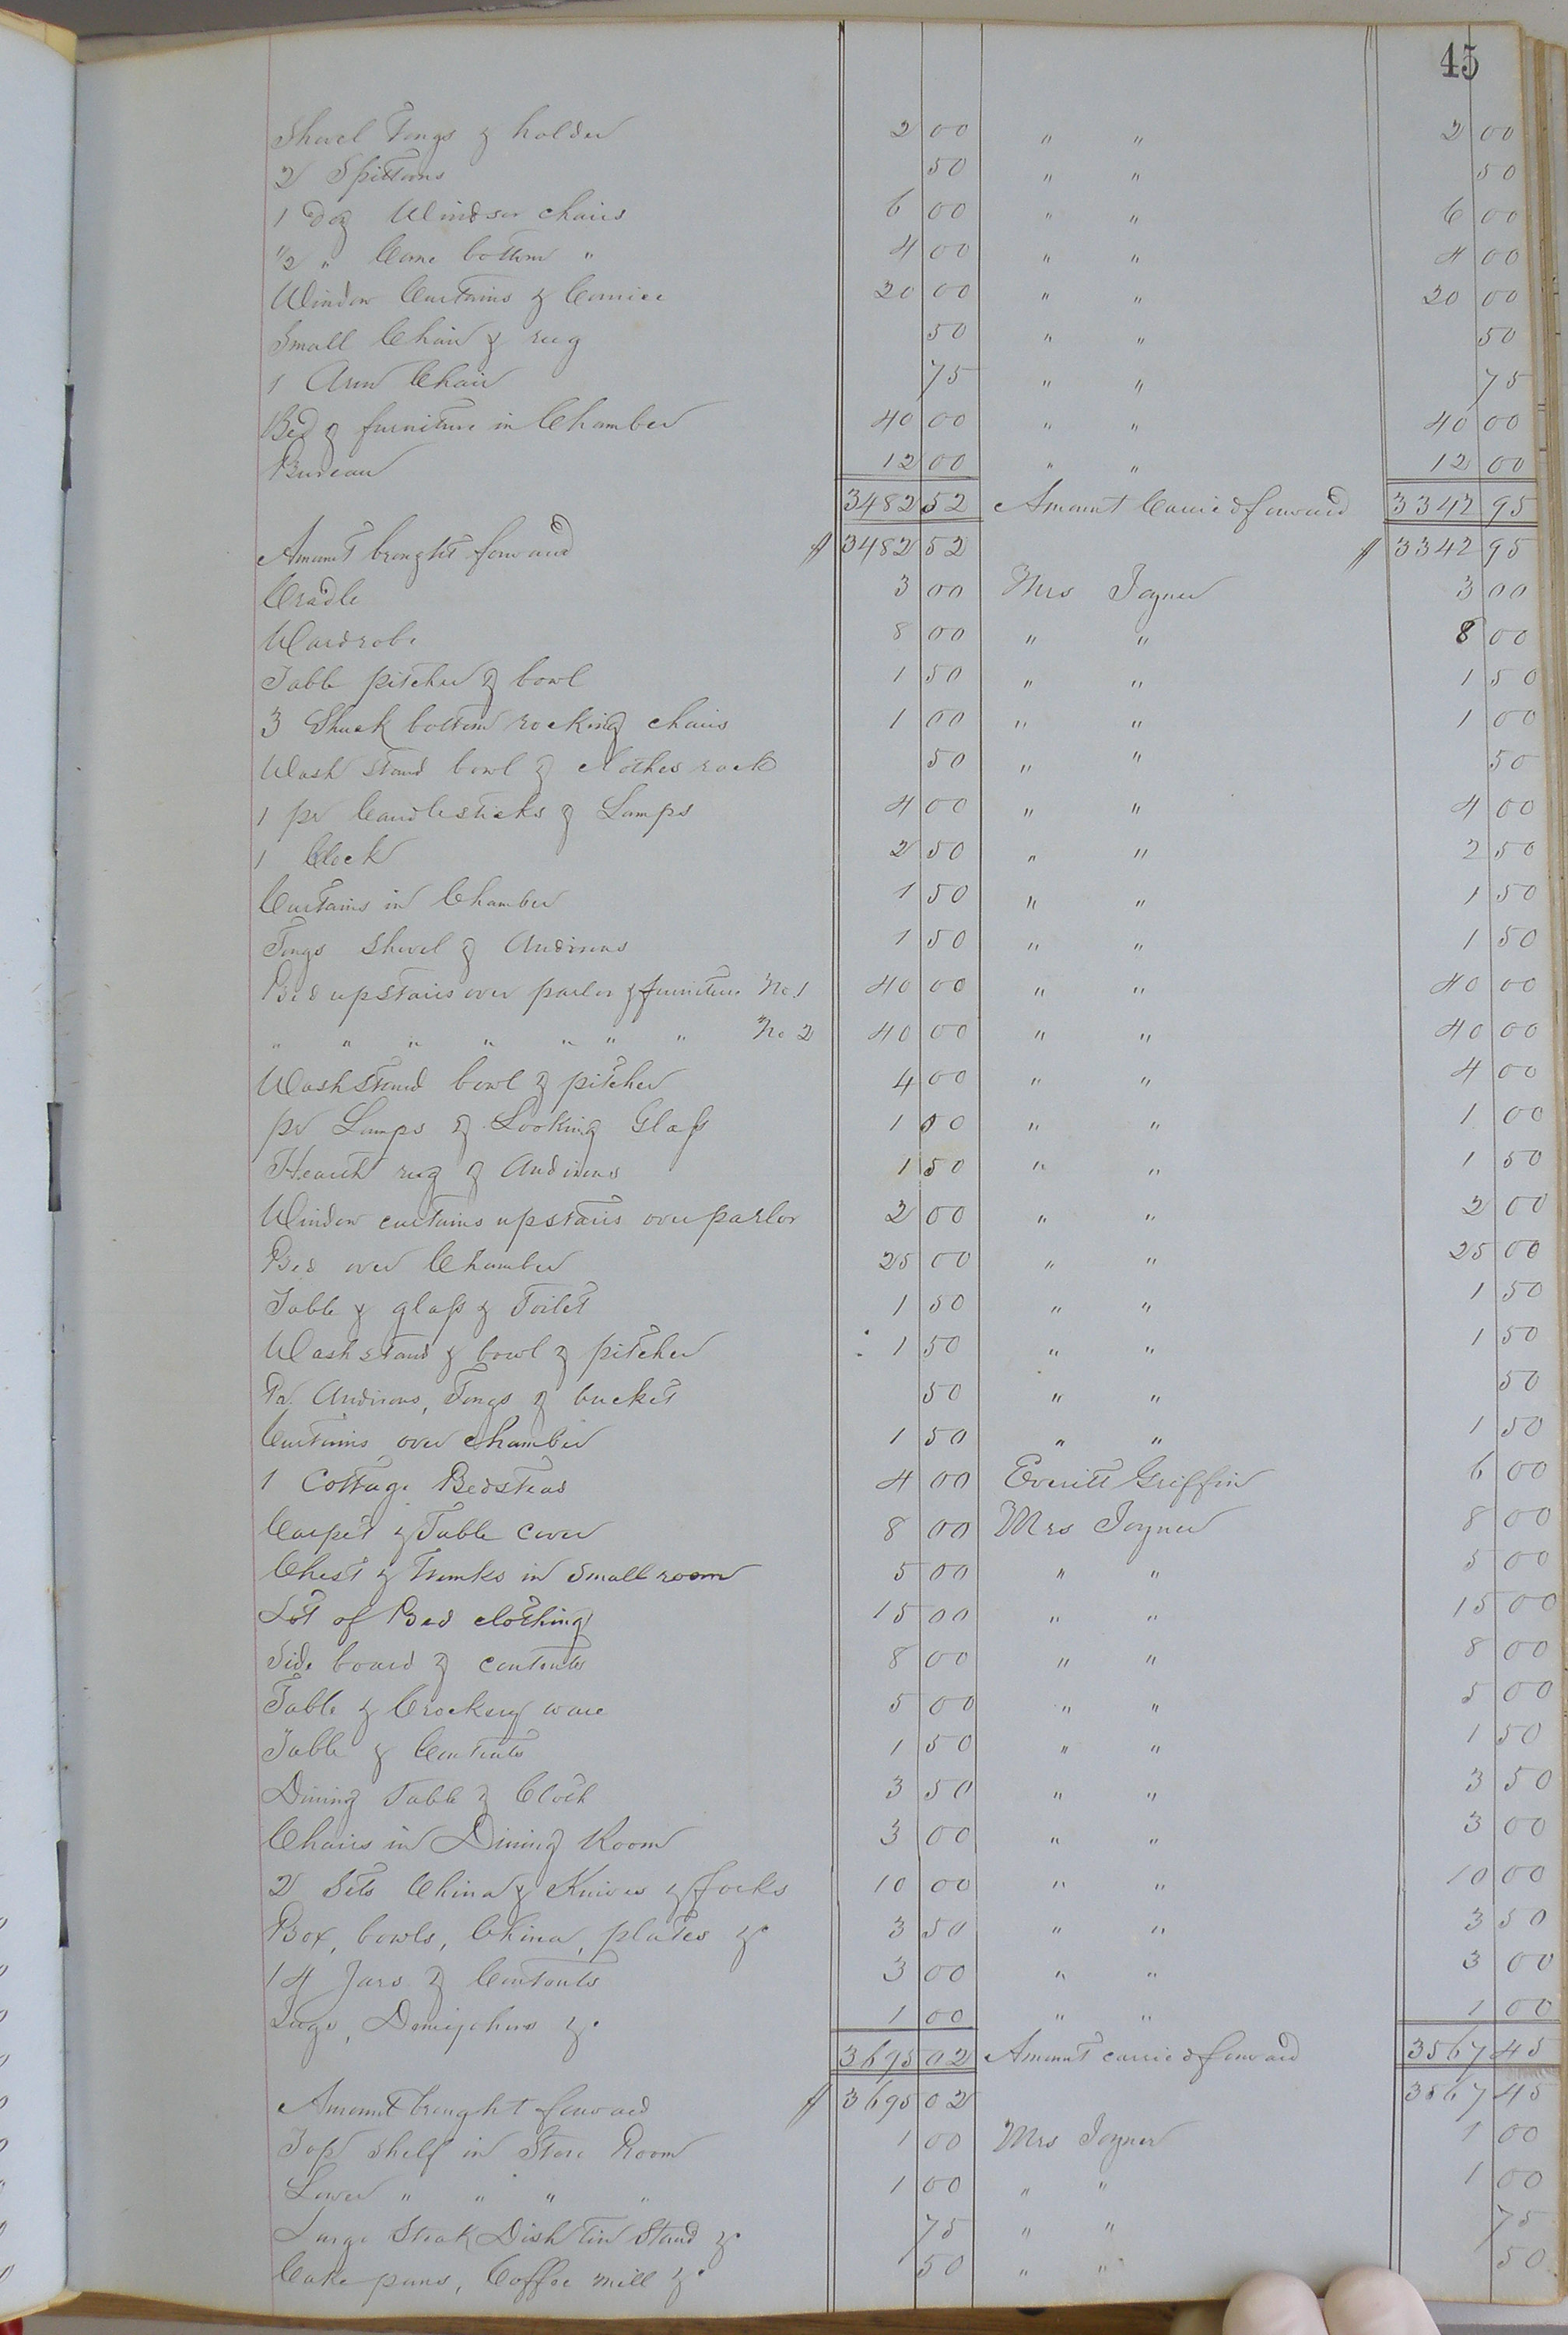 45
Shovel Tongs & holder 2 00 " " 2 00
2 Spittoons 50 " " 50
1 Doz Windsor chairs 6 00 " " 6 00
1/2 " Cane bottom " 4 00 " " 4 00
Window Curtains & Cornice 20 00 " " 20 00
Small Chair & rug 50 " " 50
1 Arm Chair 75 " " 75
Bed & furniture in Chamber 40 00 " " 40 00
Bureau 12 00 " " 12 00
3482 52 Amount Carried forward 3342 95
Amount brought forward $ 3482 52 $ 3342 95
Cradle 3 00 Mrs Joyner 3 00
Wardrobe 8 00 " " 8 00
Table pitcher & bowl 1 50 " " 1 50
3 Shuck bottom rocking chairs 1 00 " " 1 00
Wash stand bowl & clothes rack 50 " " 50
1 pr Candlesticks & Lamps 4 00 " " 4 00
1 Clock 2 50 " " 2 50
Curtains in Chamber 1 50 " " 1 50
Tongs Shovel & Andirons 1 50 " " 1 50
Bed upstairs over parlor & furniture No. 1 40 00 " " 40 00
" " " " " " " No 2 40 00 " " 40 00
Washstand bowl & pitcher 4 00 " " 4 00
pr Lamps & Looking Glass 1 00 " " 1 00
Hearth rug & Andirons 1 50 " " 1 50
Window curtains upstairs over parlor 2 00 " " 2 00
Bed over Chamber 25 00 " " 25 00
Table & glass & Toilet 1 50 " " 1 50
Wash stand & bowl & pitcher 1 50 " " 1 50
Pr Andirons, Tongs & bucket 50 " " 50
Curtains over chamber 1 50 " " 1 50
1 Cottage Bedstead 4 00 Everitt Griffin 6 00
Carpet & Table cover 8 00 Mrs Joyner 8 00
Chest & Trunks in small room 5 00 " " 5 00
Lot of Bed clothing 15 00 " " 15 00
Side board & contents 8 00 " " 8 00
Table & Crockery ware 5 00 " " 5 00
Table & Contents 1 50 " " 1 50
Dining Table & Cloth 3 50 " " 3 50
Chairs in Dining Room 3 00 " " 3 00
2 Sets China & Knives & forks 10 00 " " 10 00
Box, bowls, China, plates &c 3 50 " " 3 50
14 Jars & Contents 3 00 " " 3 00
Jugs, Demijohns &c 1 00 " " 1 00
3695 02 Amount carried forward 3567 45
Amount brought forward $ 3695 02 3567 45
Top shelf in Store Room 1 00 Mrs Joyner 1 00
Lower " " " " 1 00 " " 1 00
Large Steak Dish tin Stand &c 75 " " 75
Cake pans, Coffee mill &c 50 " " 50